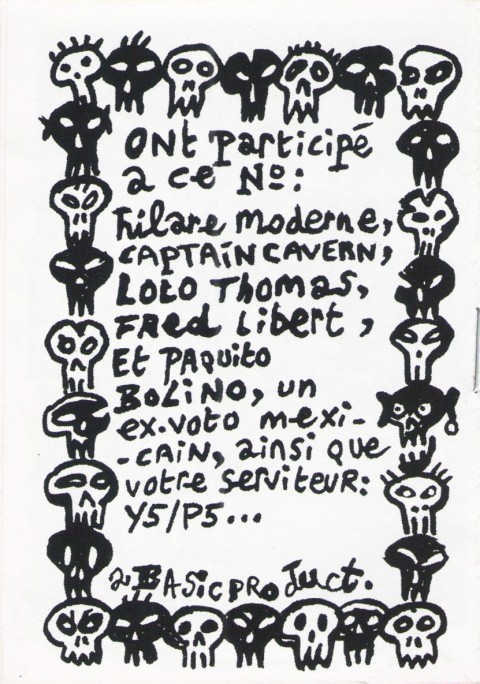 ONt participé
a ce No:
hilare moderne,
CAPTAÏN CAVERN,
Loto Thomas,
FRed Libert,
Et PAquito
BoLiNo, un
ex.voto mexi-
-CAiN, ainsi que
votre serviteuR:
Y5/P5...
BAsicproduct.